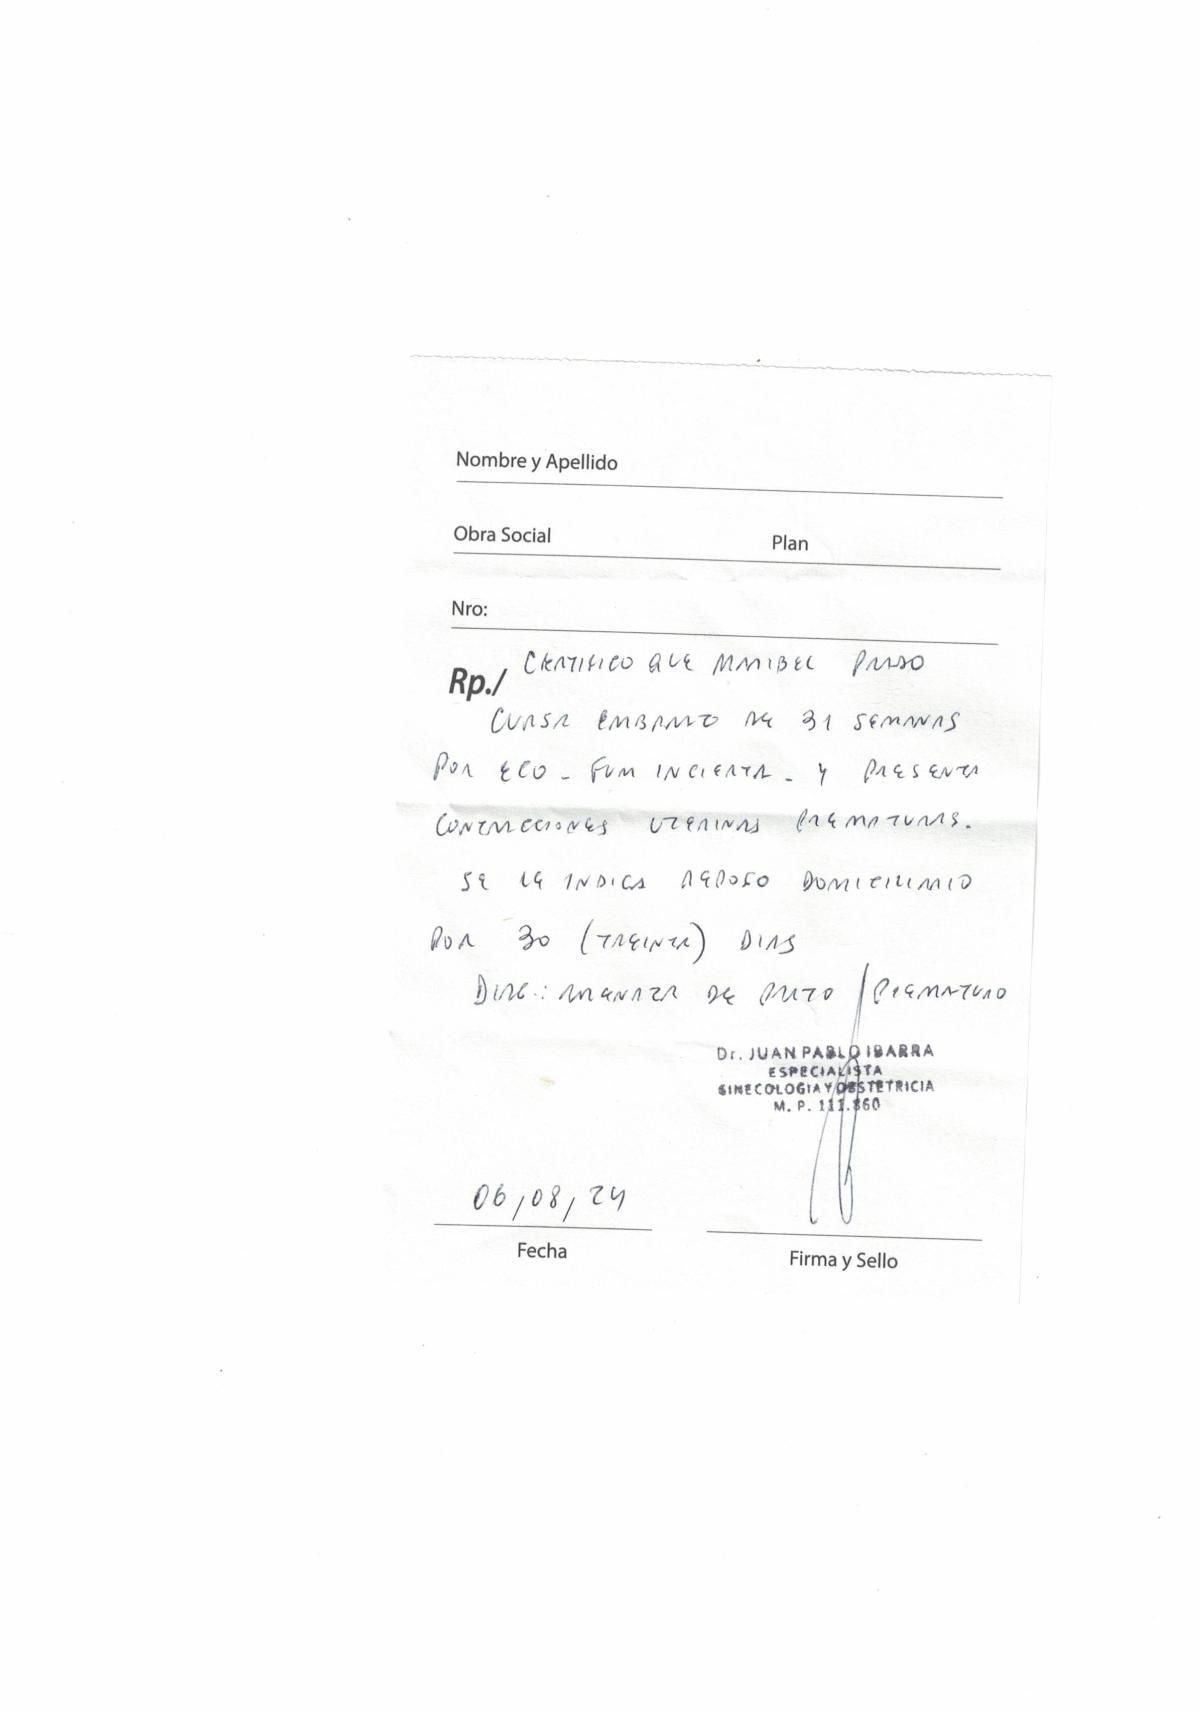 Nombre y Apellido
Obra Social Plan
Nro:
Rp./ CERTIFICO QUE MARIBEL PARDO
CURSA EMBARAZO DE 31 SEMANAS
POR ECO - FUM INCIERTA - Y PRESENTA
CONTRACCIONES UTERINAS PREMATURAS.
SE LE INDICA REPOSO DOMICILIARIO
POR 30 (TREINTA) DIAS
DIAG.: AMENAZA DE PARTO / PREMATURO
Dr. JUAN PABLO IBARRA
ESPECIALISTA
GINECOLOGIA Y OBSTETRICIA
M. P. 111.860
06/08/24
Fecha
Firma y Sello